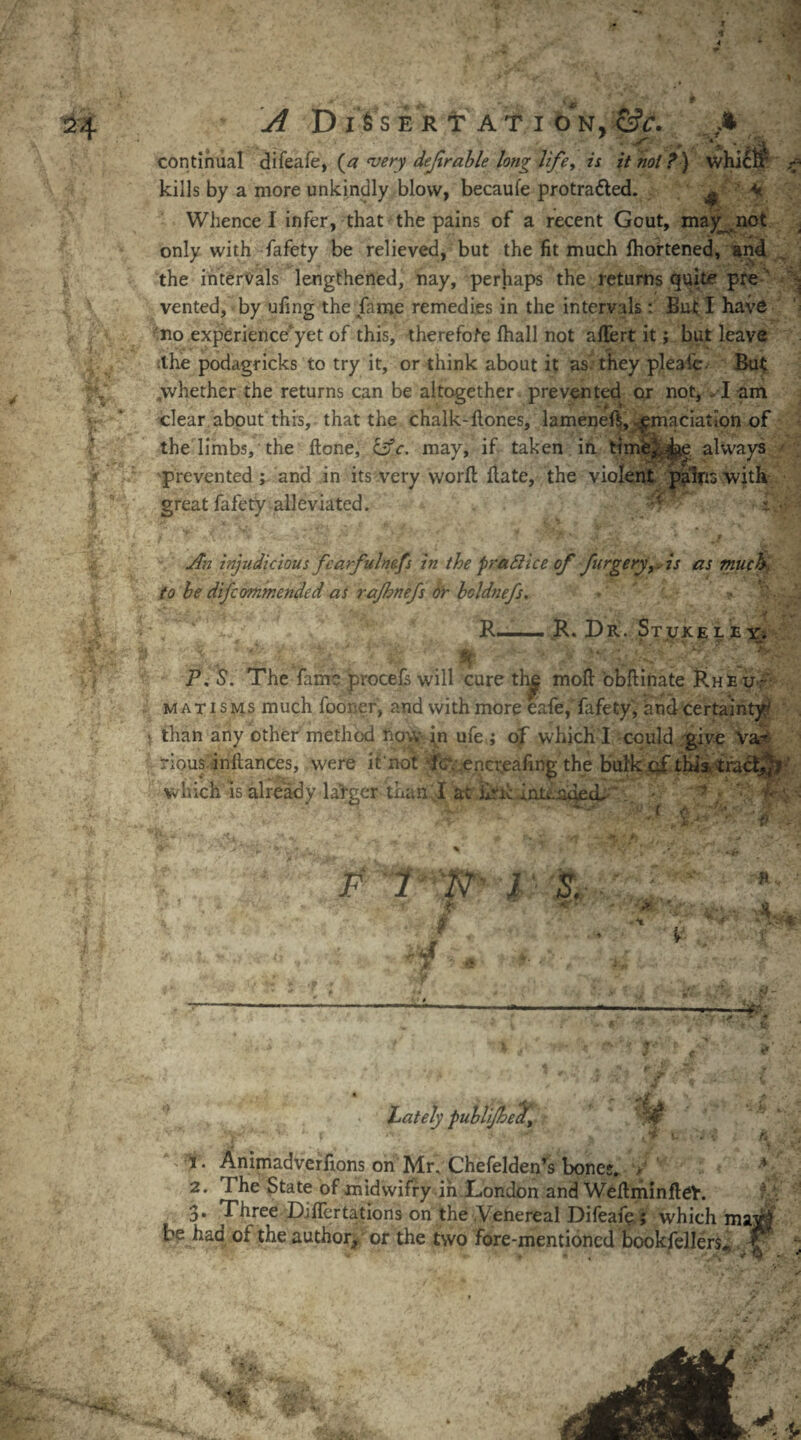 24 A DISSERTATION, &c.
continual difeafe, (a very defirable long life, is it not?) which
kills by a more unkindly blow, becaufe protracted.
Whence I infer, that the pains of a recent Gout, may not
only with fafety be relieved, but the fit much fhortened, and
the intervals lengthened, nay, perhaps the returns quite pre-
vented, by ufing the fame remedies in the intervals: But I have
no experience yet of this, therefore fhall not affert it; but leave
the podagricks to try it, or think about it as they pleafe. But
whether the returns can be altogether prevented or not, I am
clear about this, that the chalk-ftones, lamenefs, emaciation of
the limbs, the ftone, &c. may, if taken in time, be always
prevented; and in its very worft ftate, the violent pains with
great fafety alleviated.
An injudicious fearfulnefs in the practice of furgery, is as much
to be difcommended as rafhnefs or boldnefs.
R—— R. DR. STUKELEY.
P. S. The fame procefs will cure the moft obftinate RHEU-
MATISMS much fooner, and with more eafe, fafety, and certainty
than any other method now in ufe; of which I could give va-
rious inftances, were it not for encreafing the bulk of this tract,
which is already larger than I at firft intended.
FINIS.
Lately publifhed,
1. Animadverfions on Mr. Chefelden's bones.
2. The State of midwifry in London and Weftminfter.
3. Three Differtations on the Venereal Difeafe; which may
be had of the author, or the two fore-mentioned bookfellers.